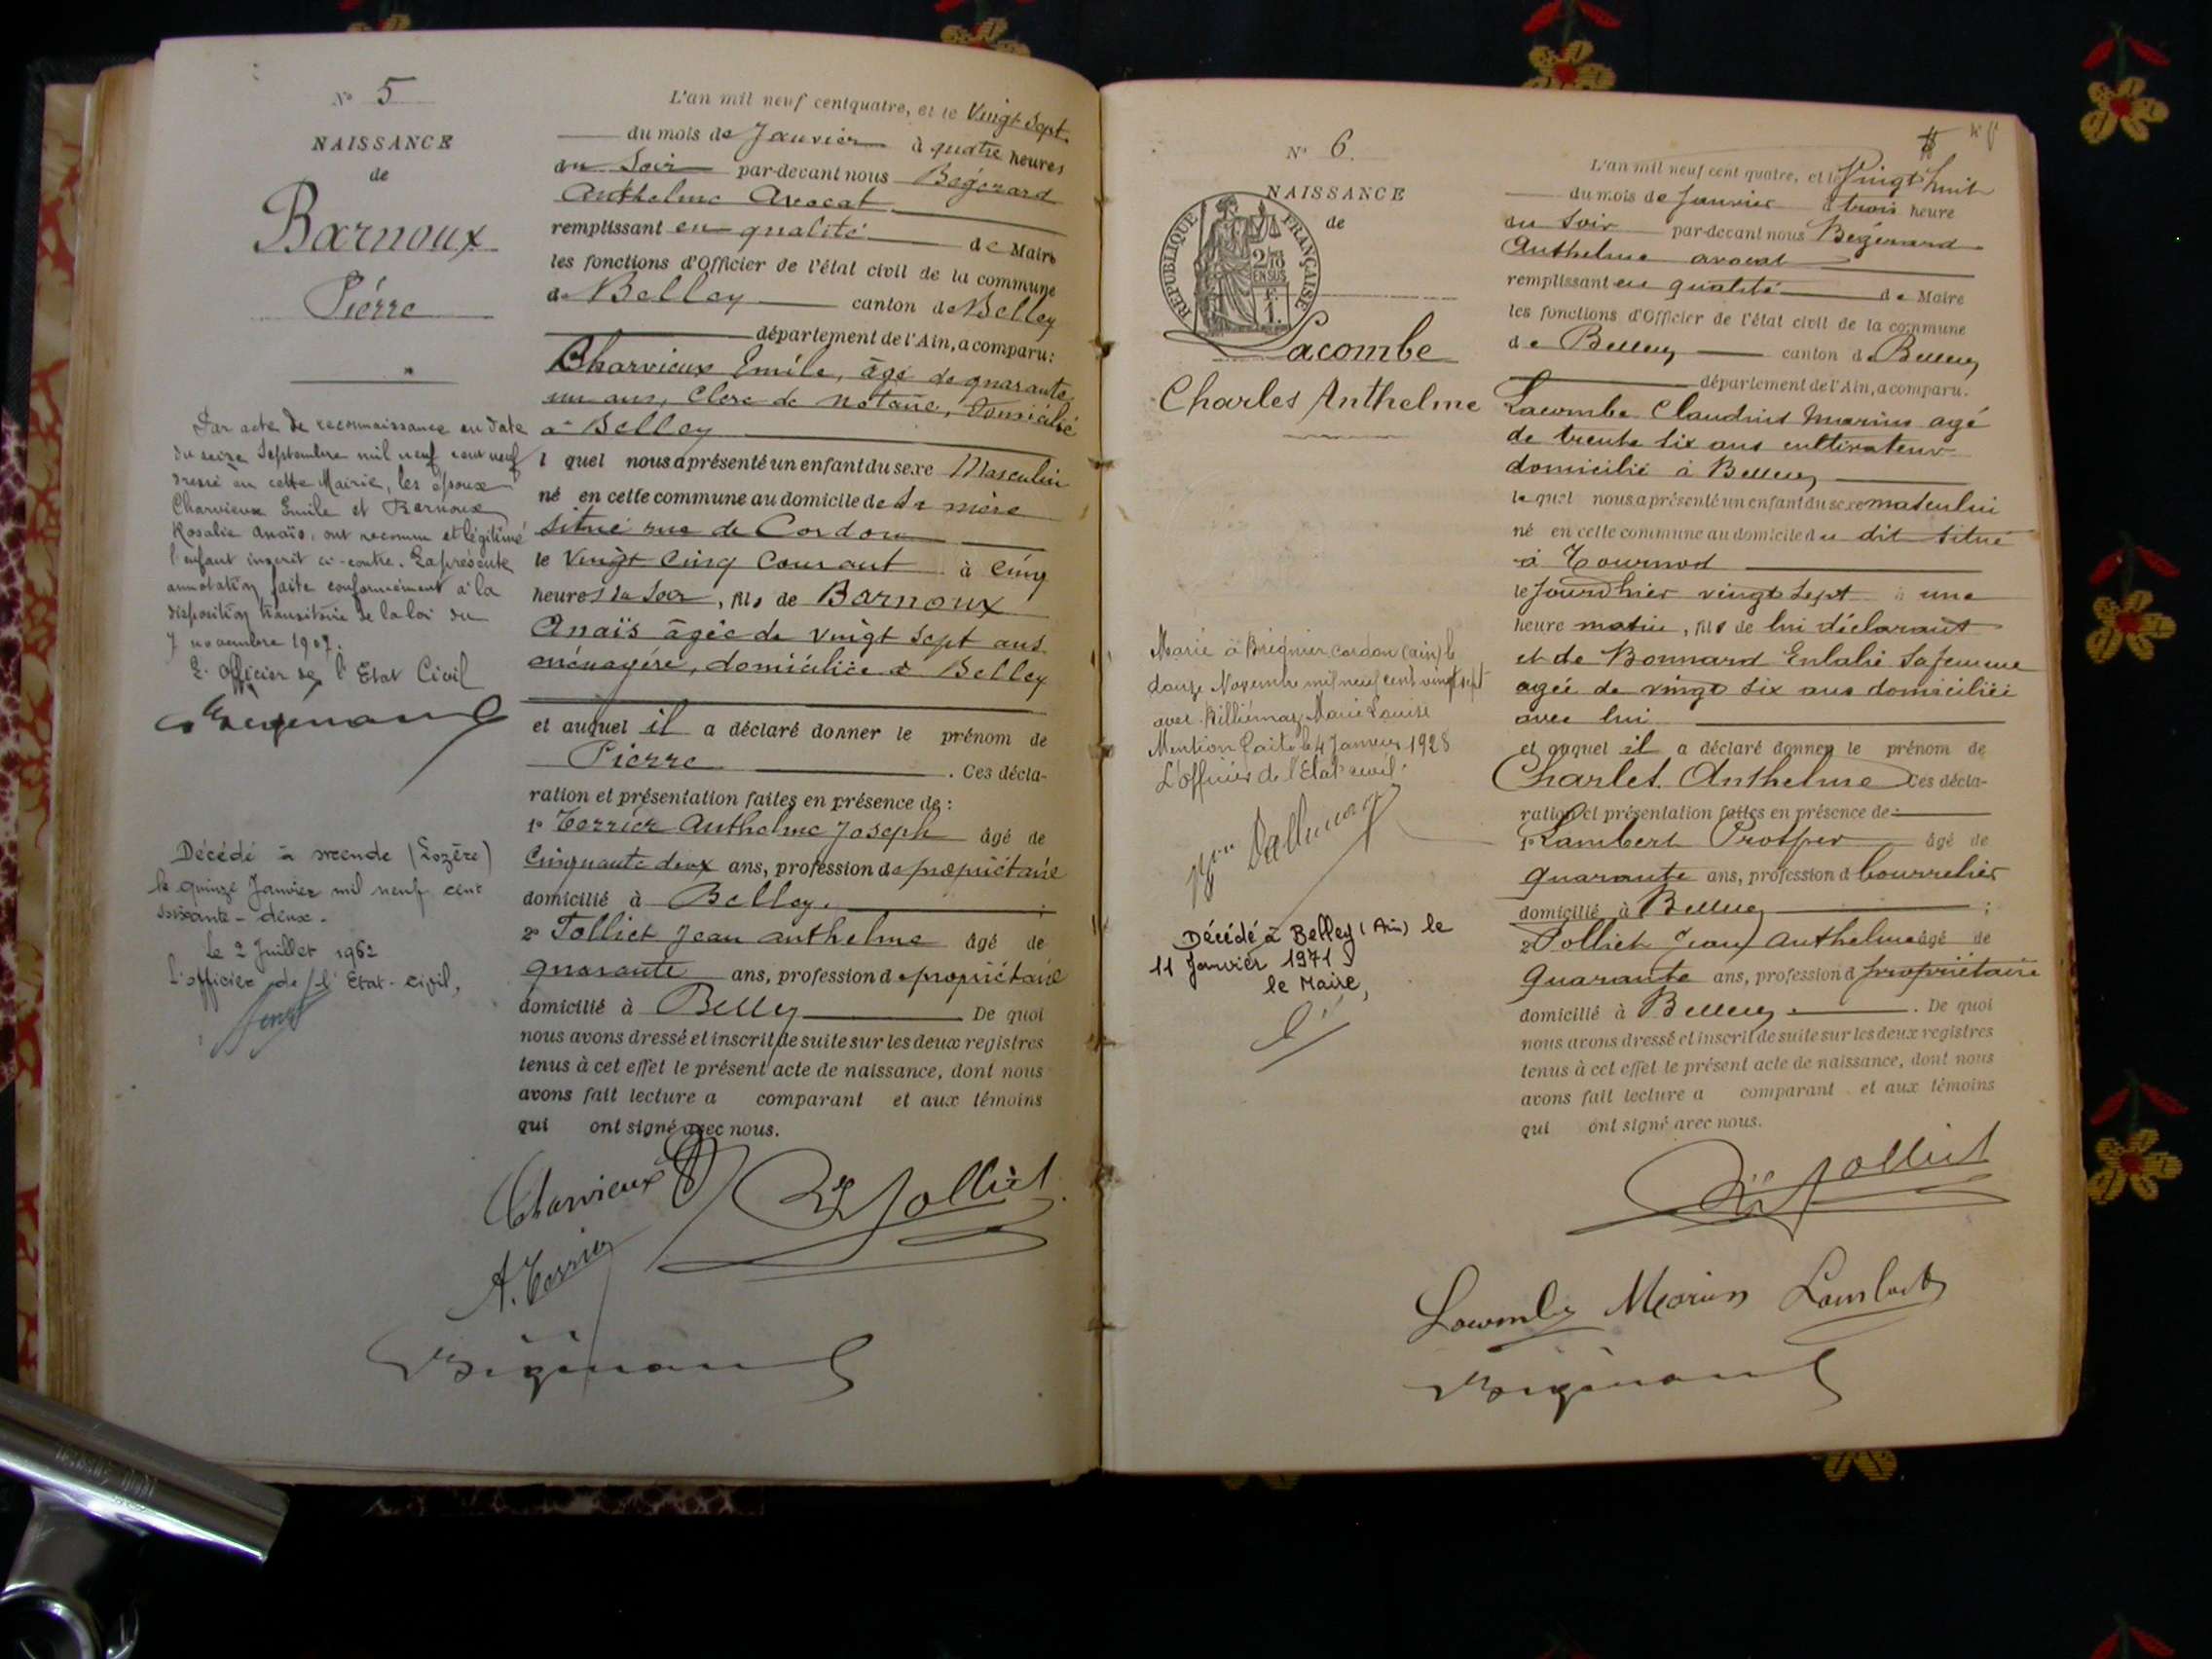 N° 5
NAISSANCE
de
Barnoux
Piérre
Par acte de reconnaissance en date
du seize Septembre mil neuf cent neuf
dressé en cette Mairie, les époux
Charvieux Emile et Barnoux
Rosalie Anaïs, ont reconnu et légitimé
l'enfant inscrit ci-contre. La présente
annotation faite conformément à la
disposition transitoire de la loi du
7 novembre 1907.
L'officier de l'Etat Civil
Bégérard
Décédé à Mende (Lozère)
le quinze Janvier mil neuf cent
soixante-deux.
Le 2 Juillet 1962
L'officier de l'Etat-civil,
L'an mil neuf centquatre, et le Vingt Sept
du mois de Janvier à quatre heures
du Soir par-devant nous Bégérard
Anthelme Avocat
remplissant en qualité de Maire
les fonctions d'Officier de l'état civil de la commune
de Belley canton de Belley
département de l'Ain, a comparu:
Charvieux Emile, âgé de quarante
un ans, Clerc de notaire, domicilié
à Belley
l quel nous a présenté un enfant du sexe Masculin
né en cette commune au domicile de sa mère
situé rue de Cordon
le Vingt Cinq Courant à Cinq
heures du Soir, fils de Barnoux
Anaïs âgée de vingt Sept ans
ménagère, domiciliée à Belley
et auquel il a déclaré donner le prénom de
Pierre . Ces décla-
ration et présentation faites en présence de :
1° Terrier Anthelme Joseph âgé de
Cinquante deux ans, profession de propriétaire
domicilié à Belley. ;
2° Tolliet Jean Anthelme âgé de
quarante ans, profession de propriétaire
domicilié à Belley De quoi
nous avons dressé et inscrit de suite sur les deux registres
tenus à cet effet le présent acte de naissance, dont nous
avons fait lecture a comparant et aux témoins
qui ont signé avec nous.
Charvieux
Tolliet
A. Terrier
Bégérard
N° 6.
NAISSANCE
de
REPUBLIQUE FRANÇAISE
2/10
EN SUS
1 F.
Lacombe
Charles Anthelme
Marié à Brégnier Cordon (ain) le
douze Novembre mil neuf cent vingt sept
avec Billiémaz Marie Louise
Mention faite le 4 Janvier 1928
L'officier de l'Etat civil.
Décédé à Belley (Ain) le
11 Janvier 1971
le Maire,
L'an mil neuf cent quatre, et le Vingt huit
du mois de Janvier à trois heure
du Soir par-devant nous Bégérard
Anthelme avocat
remplissant en qualité de Maire
les fonctions d'Officier de l'état civil de la commune
de Belley canton de Belley
département de l'Ain, a comparu.
Lacombe Claudius Marius agé
de trente six ans cultivateur
domicilié à Belley
le quel nous a présenté un enfant du sexe masculin
né en cette commune au domicile du dit situé
à
le jourd'hier vingt sept à une
heure matin, fils de lui déclarant
et de Bonnard Eulalie sa femme
agée de vingt six ans domiciliée
avec lui
et auquel il a déclaré donner le prénom de
Charles Anthelme Ces décla-
ration et présentation faites en présence de :
1° Lambert Prosper âgé de
quarante ans, profession d bourrelier
domicilié à Belley ;
2° Tolliet Jean Anthelme âgé de
quarante ans, profession d propriétaire
domicilié à Belley . De quoi
nous avons dressé et inscrit de suite sur les deux registres
tenus à cet effet le présent acte de naissance, dont nous
avons fait lecture a comparant et aux témoins
qui ont signé avec nous.
Tolliet
Lacombe Marius Lambert
Bégérard